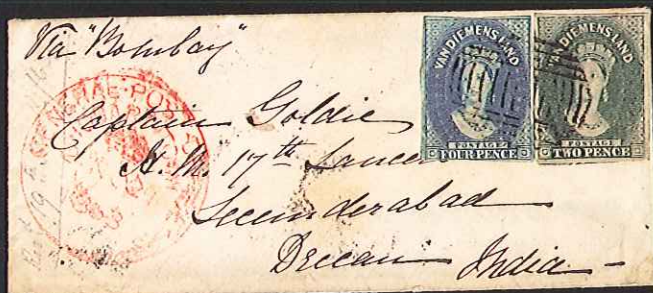 Via "Bombay"
VAN DIEMENS LAND
POSTAGE
FOURPENCE
VAN DIEMENS LAND
POSTAGE
TWO PENCE
Captain Goldie
H. M. 17th Lancers
Secunderabad
Deccan India